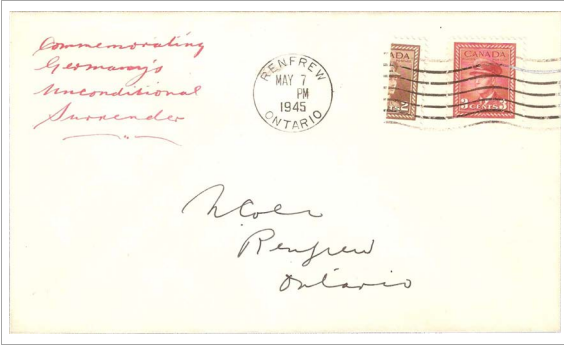 Commemorating
Germany's
Unconditional
Surrender
RENFREW
MAY 7
PM
1945
ONTARIO
ADA
CANADA
3 CENTS 3
Renfrew
Ontario